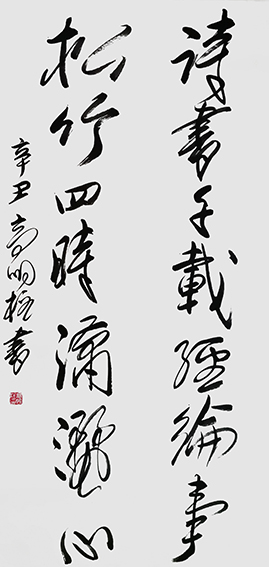 詩書千載經綸事
松竹四時瀟灑心
辛丑 高明 書